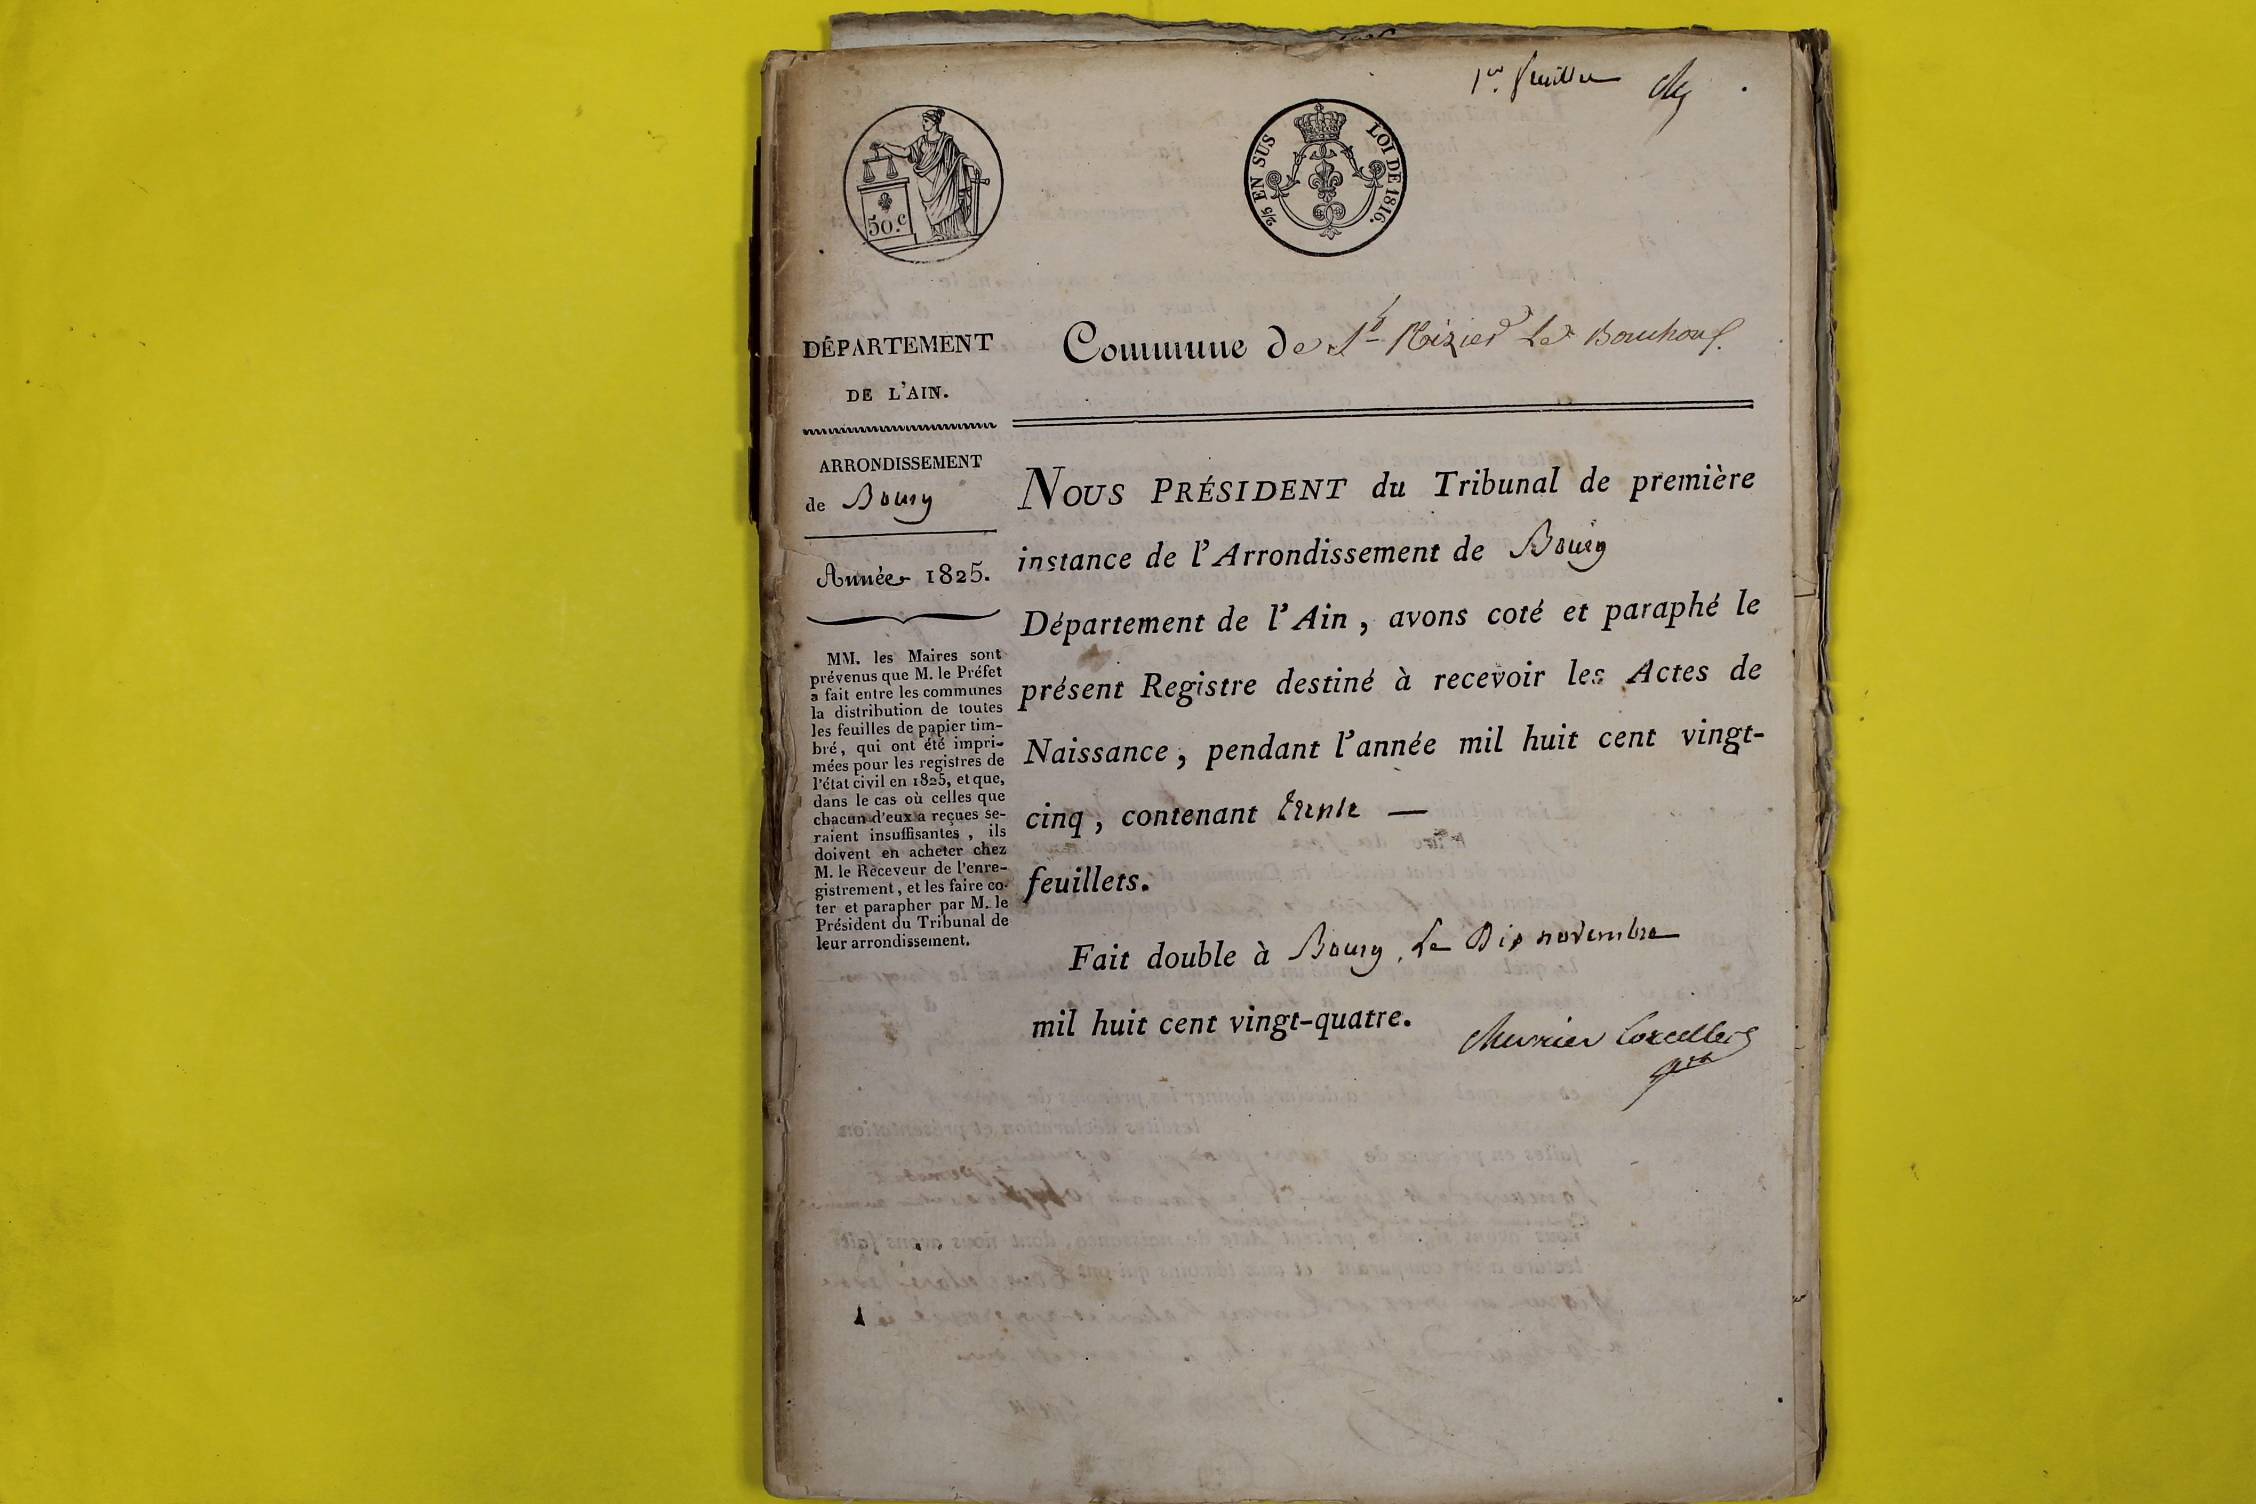 1er. feuillet
50.c
2/5 EN SUS LOI DE 1816.
DÉPARTEMENT
DE L'AIN.
ARRONDISSEMENT
de Bourg
Année 1825.
MM. les Maires sont
prévenus que M. le Préfet
a fait entre les communes
la distribution de toutes
les feuilles de papier tim-
bré, qui ont été impri-
mées pour les registres de
l'état civil en 1825, et que,
dans le cas où celles que
chacun d'eux a reçues se-
raient insuffisantes, ils
doivent en acheter chez
M. le Receveur de l'enre-
gistrement, et les faire co-
ter et parapher par M. le
Président du Tribunal de
leur arrondissement.
Commune de St Nizier Le Bouchoux
NOUS PRÉSIDENT du Tribunal de première
instance de l'Arrondissement de Bourg
Département de l'Ain, avons coté et paraphé le
présent Registre destiné à recevoir les Actes de
Naissance, pendant l'année mil huit cent vingt-
cinq, contenant trente —
feuillets.
Fait double à Bourg, Le Dix novembre
mil huit cent vingt-quatre.